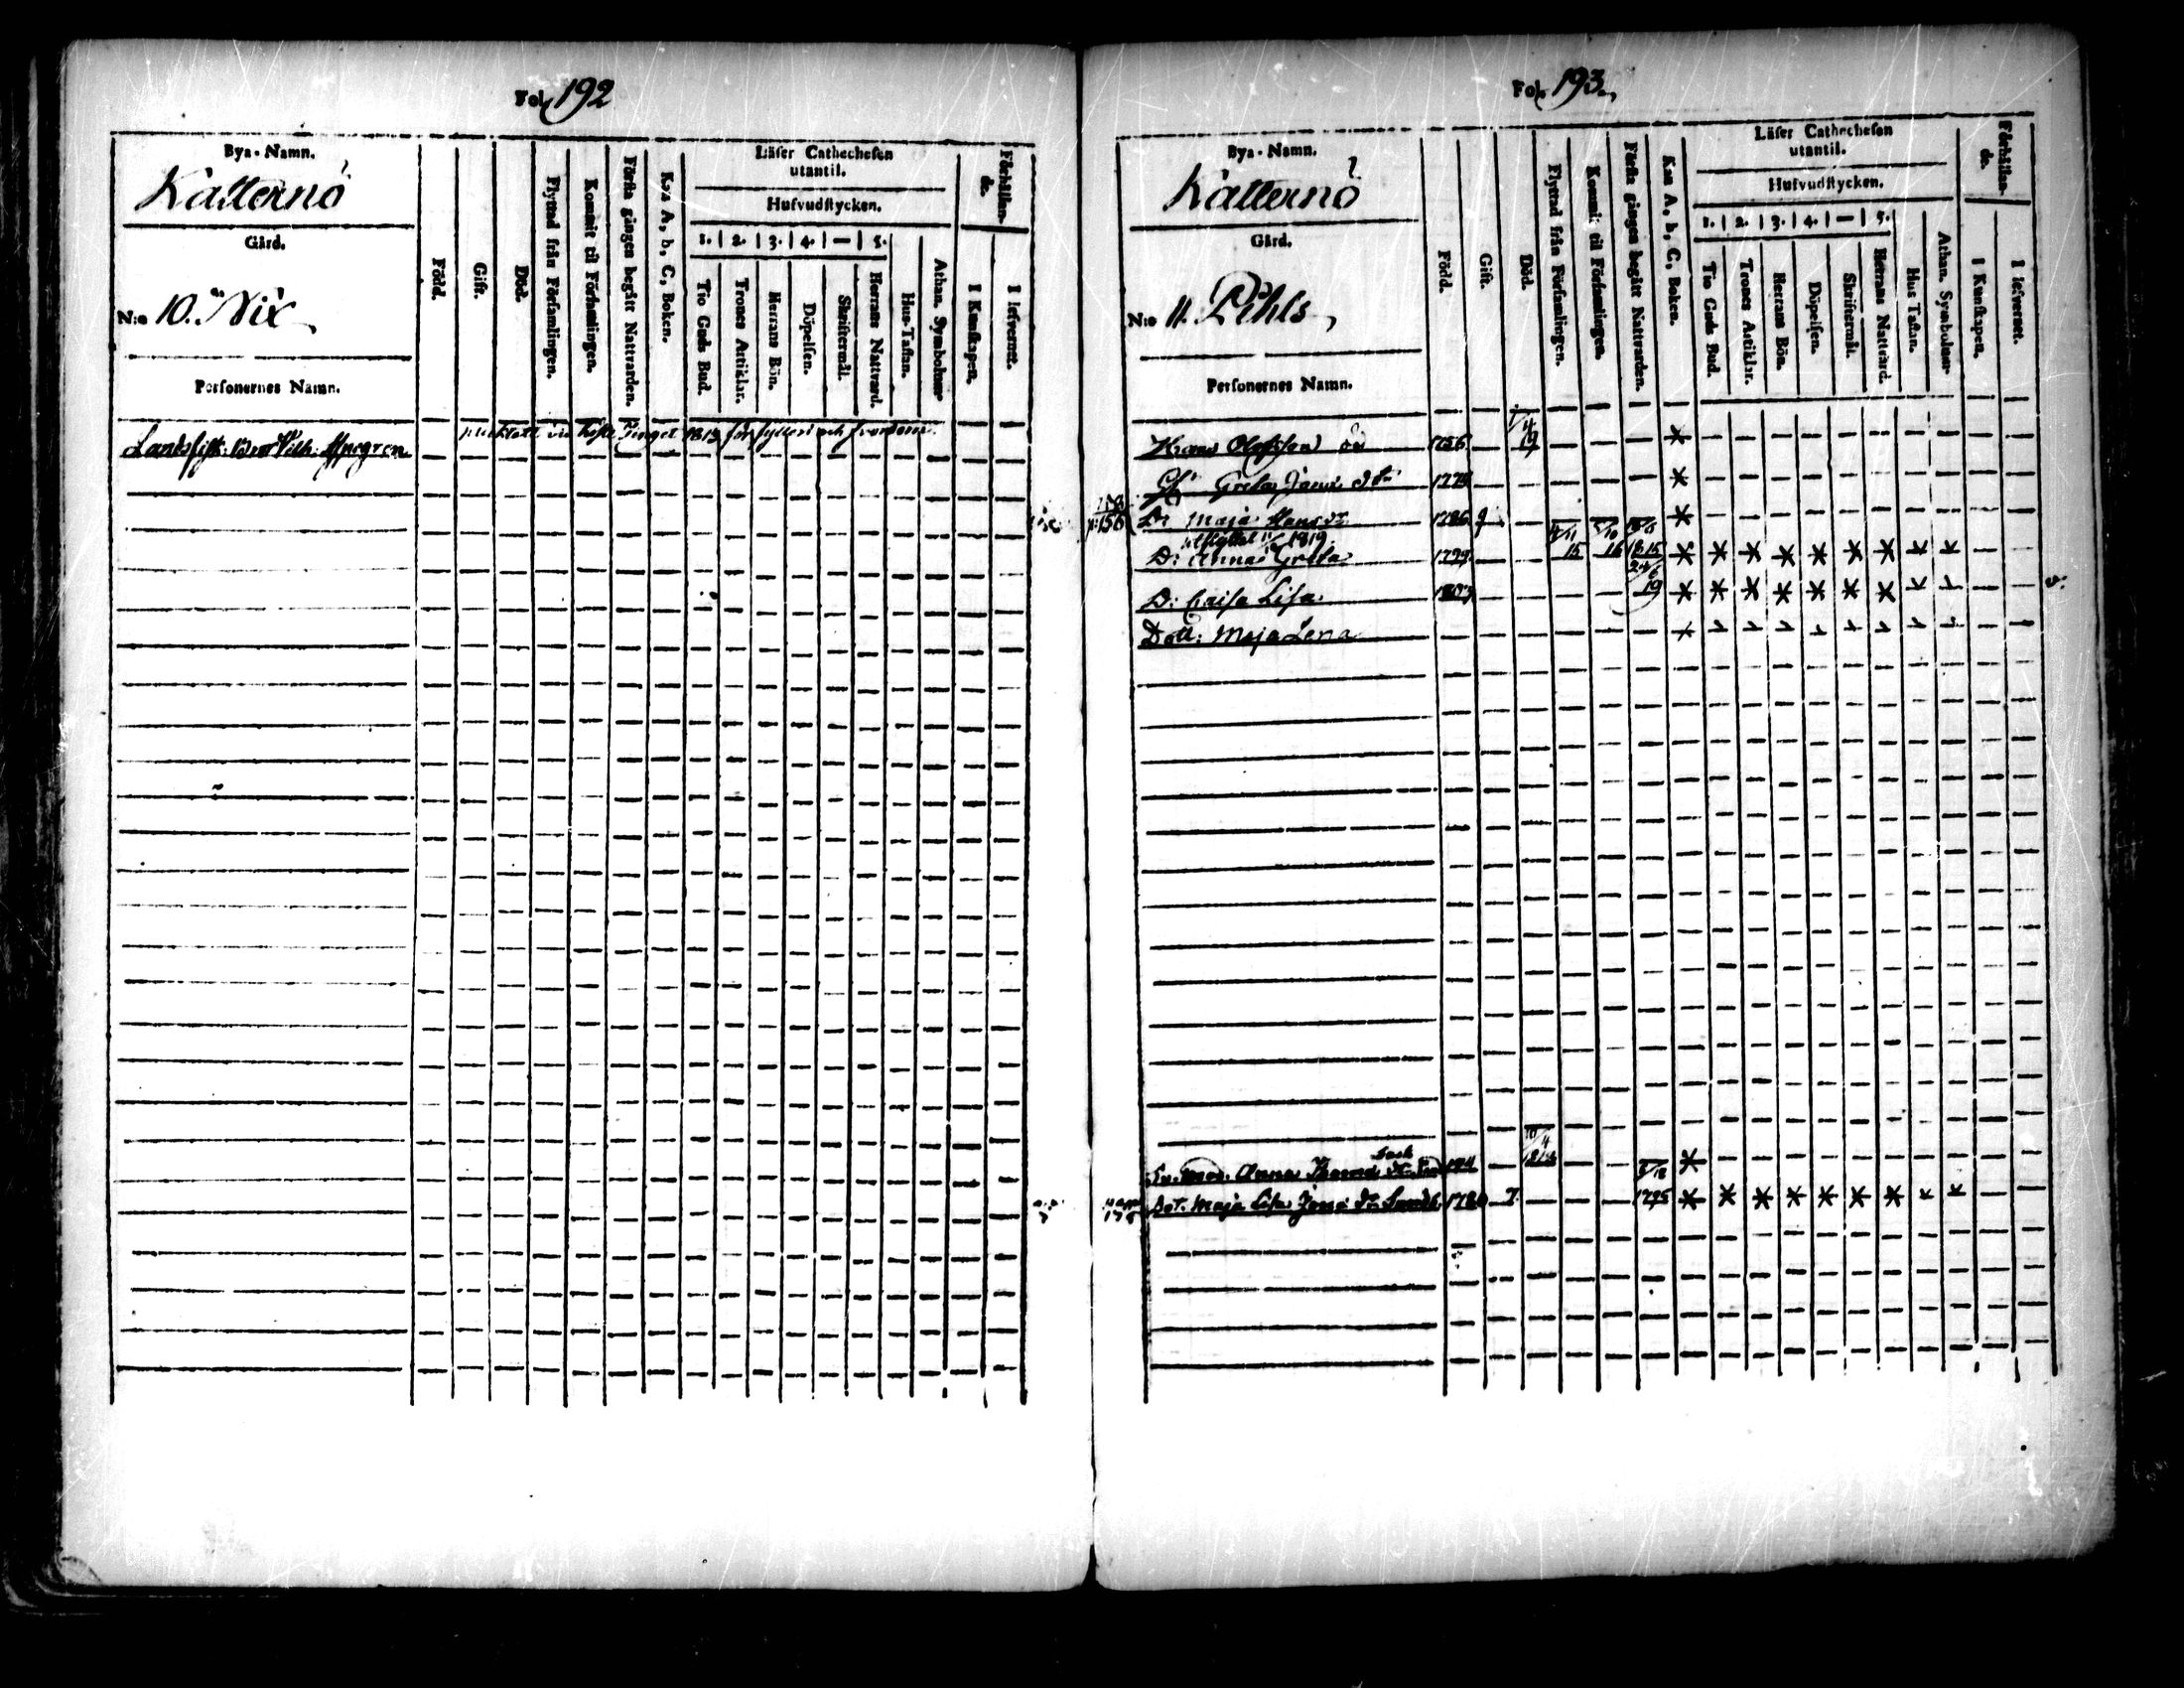 Fol. 192
Bya-Namn.
Kätternö
Gård.
N:o 10. Nix
Personernes Namn.
Född.
Gift.
Död.
Flyttad från Församlingen.
Kommit til Församlingen.
Första gången begått Nattvarden.
Kan A, b, C, Boken.
Läser Cathechesen
utantil.
Hufvudstycken.
1. 2. 3. 4. — 5.
Tio Guds Bud.
Trones Artiklar.
Herrans Bön.
Döpelsen.
Skriftermål.
Herrans Nattvard.
Hus-Taflan.
Athan. Symbolum
Förhållan-
de.
I Kunskapen.
I lefvernet.
pliktat vid Höste Tinget 1819 för fylleri och svordom.
Fol. 193
Bya-Namn.
Kätternö
Gård.
N:o 11. Pihls
Personernes Namn.
Född.
Gift.
Död.
Flyttad från Församlingen.
Kommit til Församlingen.
Första gången begått Nattvarden.
Kan A, b, C, Boken.
Läser Cathechesen
utantil.
Hufvudstycken.
1. 2. 3. 4. — 5.
Tio Guds Bud.
Trones Artiklar.
Herrans Bön.
Döpelsen.
Skriftermål.
Herrans Nattvard.
Hus Taflan.
Athan. Symbolum
Förhållan-
de.
I Kunskapen.
I lefvernet.
Hans Olofsson 1756
Greta 177
p. 156 D: Maja Hans dr 1786 g
utflyttat 1819
D: Anna Greta 1799 4/11 15 16 1815
D: Caisa Lisa 1803 24/6 19
Dott: Maja Lena
Anna Thomas dr
Maja Lisa Jona dr 1780 1795